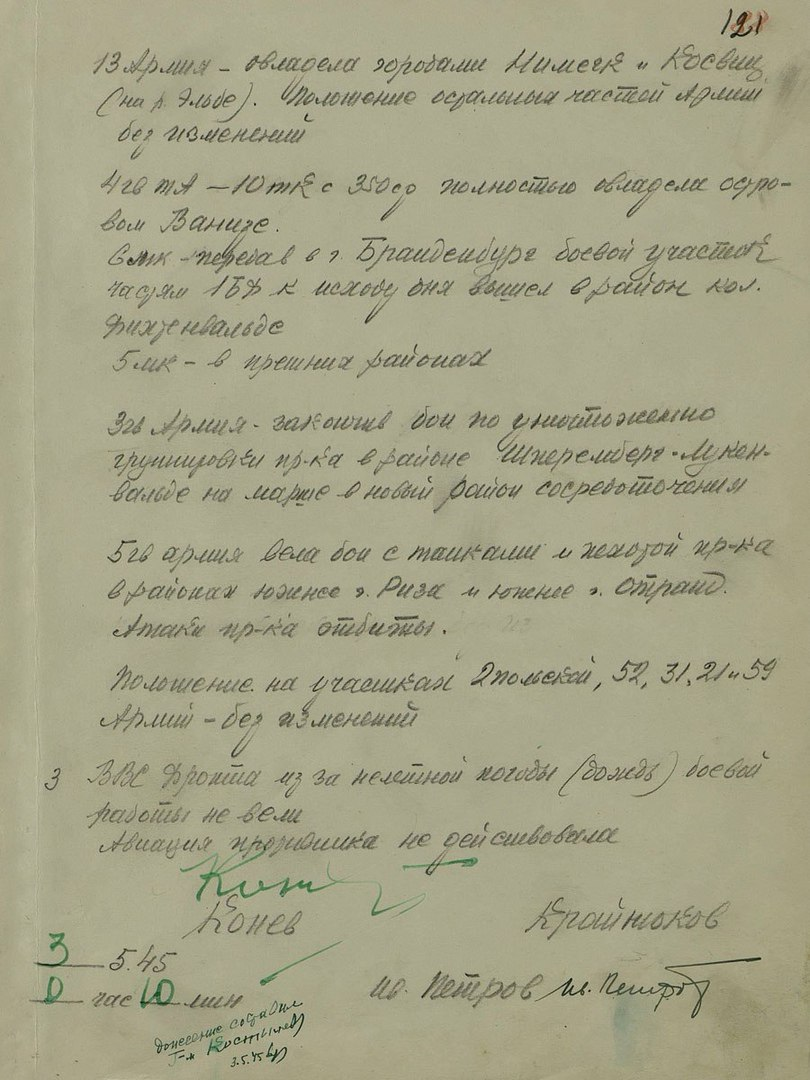 121
13 Армия – овладела городами Нимегк и Косвиц
(на р. Эльбе). Положение остальных частей Армии
без изменений
4 гв ТА – 10 тк с 350 сд полностью овладела остро-
вом Ванизе.
6 мк – передав в г. Бранденбург боевой участок
частям 1БФ к исходу дня вышел в район кол.
Фихтенвальде
5 мк – в прежних районах
3 гв Армия – закончив бои по уничтожению
группировки пр-ка в районе Шперемберг - Лукен-
вальде на марше в новый район сосредоточения
5 гв армия вела бои с танками и пехотой пр-ка
в районах южнее г. Риза и южнее г. Отранд.
Атаки пр-ка отбиты.
Положение на участках 2 польской, 52, 31, 21 и 59
Армий – без изменений
3 ВВС Фронта из за нелетной погоды (дождь) боевой
работы не вели
Авиация противника не действовала
Конев Крайнюков
3 5.45
0 час 10 мин ив. Петров ив. Петров
донесение составил
Костылев
3.5.45